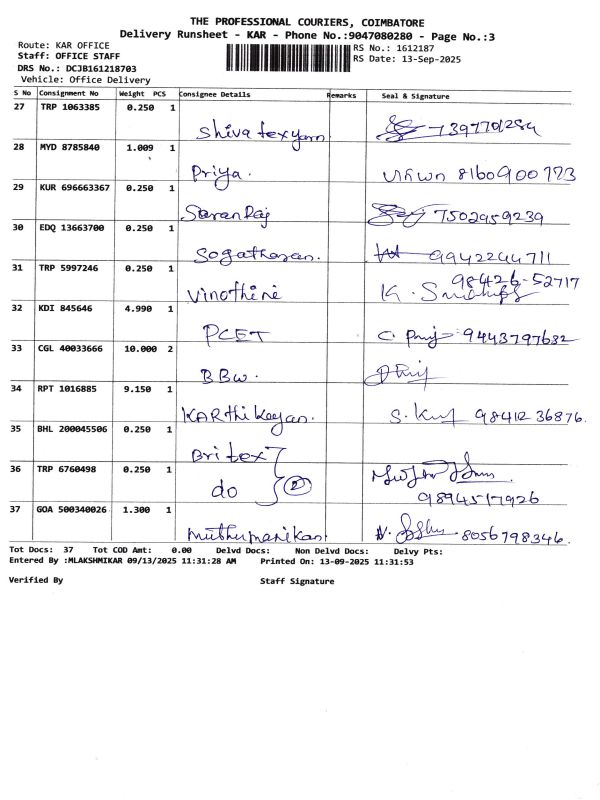 THE PROFESSIONAL COURIERS, COIMBATORE
Delivery Runsheet - KAR - Phone No.:9047080280 - Page No.:3
Route: KAR OFFICE
RS No.: 1612187
Staff: OFFICE STAFF
RS Date: 13-Sep-2025
DRS No.: DCJB161218703
Vehicle: Office Delivery
S No Consignment No Weight PCS Consignee Details Remarks Seal & Signature
27 TRP 1063385 0.250 1
Shiva texyarn
28 MYD 8785840 1.009 1
Priya. 8160900773
29 KUR 696663367 0.250 1
SaranRaj 7502959239
30 EDQ 13663700 0.250 1
9942244711
31 TRP 5997246 0.250 1 98426-52717
Vinothini K.
32 KDI 845646 4.990 1
PCET 9443797632
33 CGL 40033666 10.000 2
BBW.
34 RPT 1016885 9.150 1
KARthikeyan. 98412 36876.
35 BHL 200045506 0.250 1
Britex
36 TRP 6760498 0.250 1
do 2
9894517926
37 GOA 500340026 1.300 1
Muthumanikan 8056798346.
Tot Docs: 37 Tot COD Amt: 0.00 Delvd Docs: Non Delvd Docs: Delvy Pts:
Entered By :MLAKSHMIKAR 09/13/2025 11:31:28 AM Printed On: 13-09-2025 11:31:53
Verified By Staff Signature